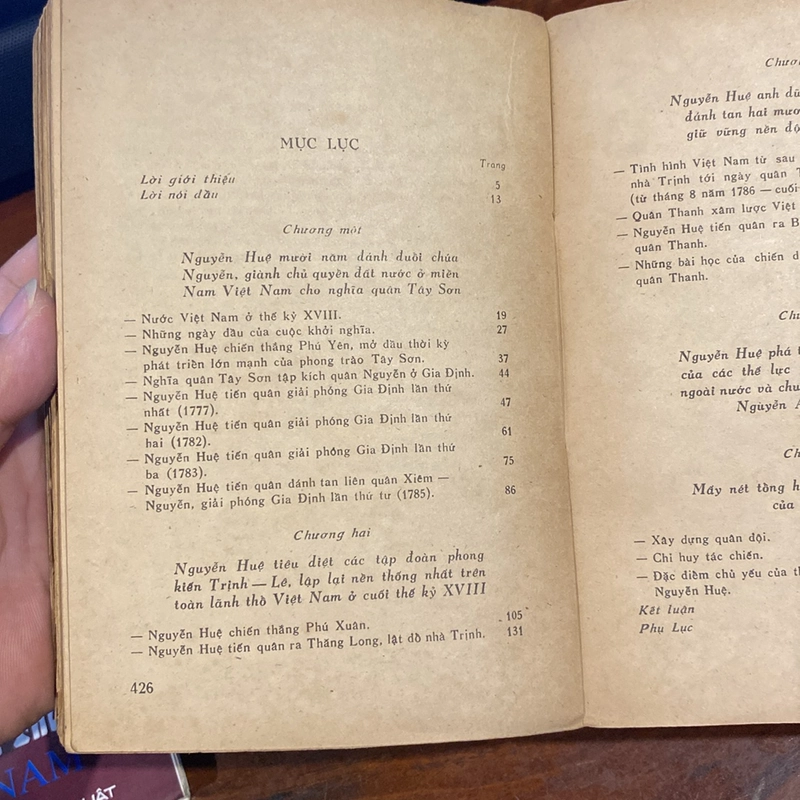 MỤC LỤC
Trang
Lời giới thiệu 5
Lời nói đầu 13
Chương một
Nguyễn Huệ mười năm đánh đuổi chúa
Nguyễn, giành chủ quyền đất nước ở miền
Nam Việt Nam cho nghĩa quân Tây Sơn
— Nước Việt Nam ở thế kỷ XVIII. 19
— Những ngày đầu của cuộc khởi nghĩa. 27
— Nguyễn Huệ chiến thắng Phú Yên, mở đầu thời kỳ
phát triển lớn mạnh của phong trào Tây Sơn. 37
— Nghĩa quân Tây Sơn tập kích quân Nguyễn ở Gia Định. 44
— Nguyễn Huệ tiến quân giải phóng Gia Định lần thứ
nhất (1777). 47
— Nguyễn Huệ tiến quân giải phóng Gia Định lần thứ
hai (1782). 61
— Nguyễn Huệ tiến quân giải phóng Gia Định lần thứ
ba (1783). 75
— Nguyễn Huệ tiến quân đánh tan liên quân Xiêm —
Nguyễn, giải phóng Gia Định lần thứ tư (1785). 86
Chương hai
Nguyễn Huệ tiêu diệt các tập đoàn phong
kiến Trịnh — Lê, lập lại nền thống nhất trên
toàn lãnh thổ Việt Nam ở cuối thế kỷ XVIII
— Nguyễn Huệ chiến thắng Phú Xuân. 105
— Nguyễn Huệ tiến quân ra Thăng Long, lật đổ nhà Trịnh. 131
426
Nguyễn Huệ anh
đánh tan hai
giữ vững nền
— Tình hình Việt Nam từ sau
nhà Trịnh tới ngày quân
(từ tháng 8 năm 1786 — cuối
— Quân Thanh xâm lược Việt
— Nguyễn Huệ tiến quân ra
quân Thanh.
— Những bài học của chiến
quân Thanh.
Nguyễn Huệ phá
của các thế lực
ngoài nước và
Nguyễn
Mấy nét tổng
của
— Xây dựng quân đội.
— Chỉ huy tác chiến.
— Đặc điểm chủ yếu của
Nguyễn Huệ.
Kết luận
Phụ Lục
NAM